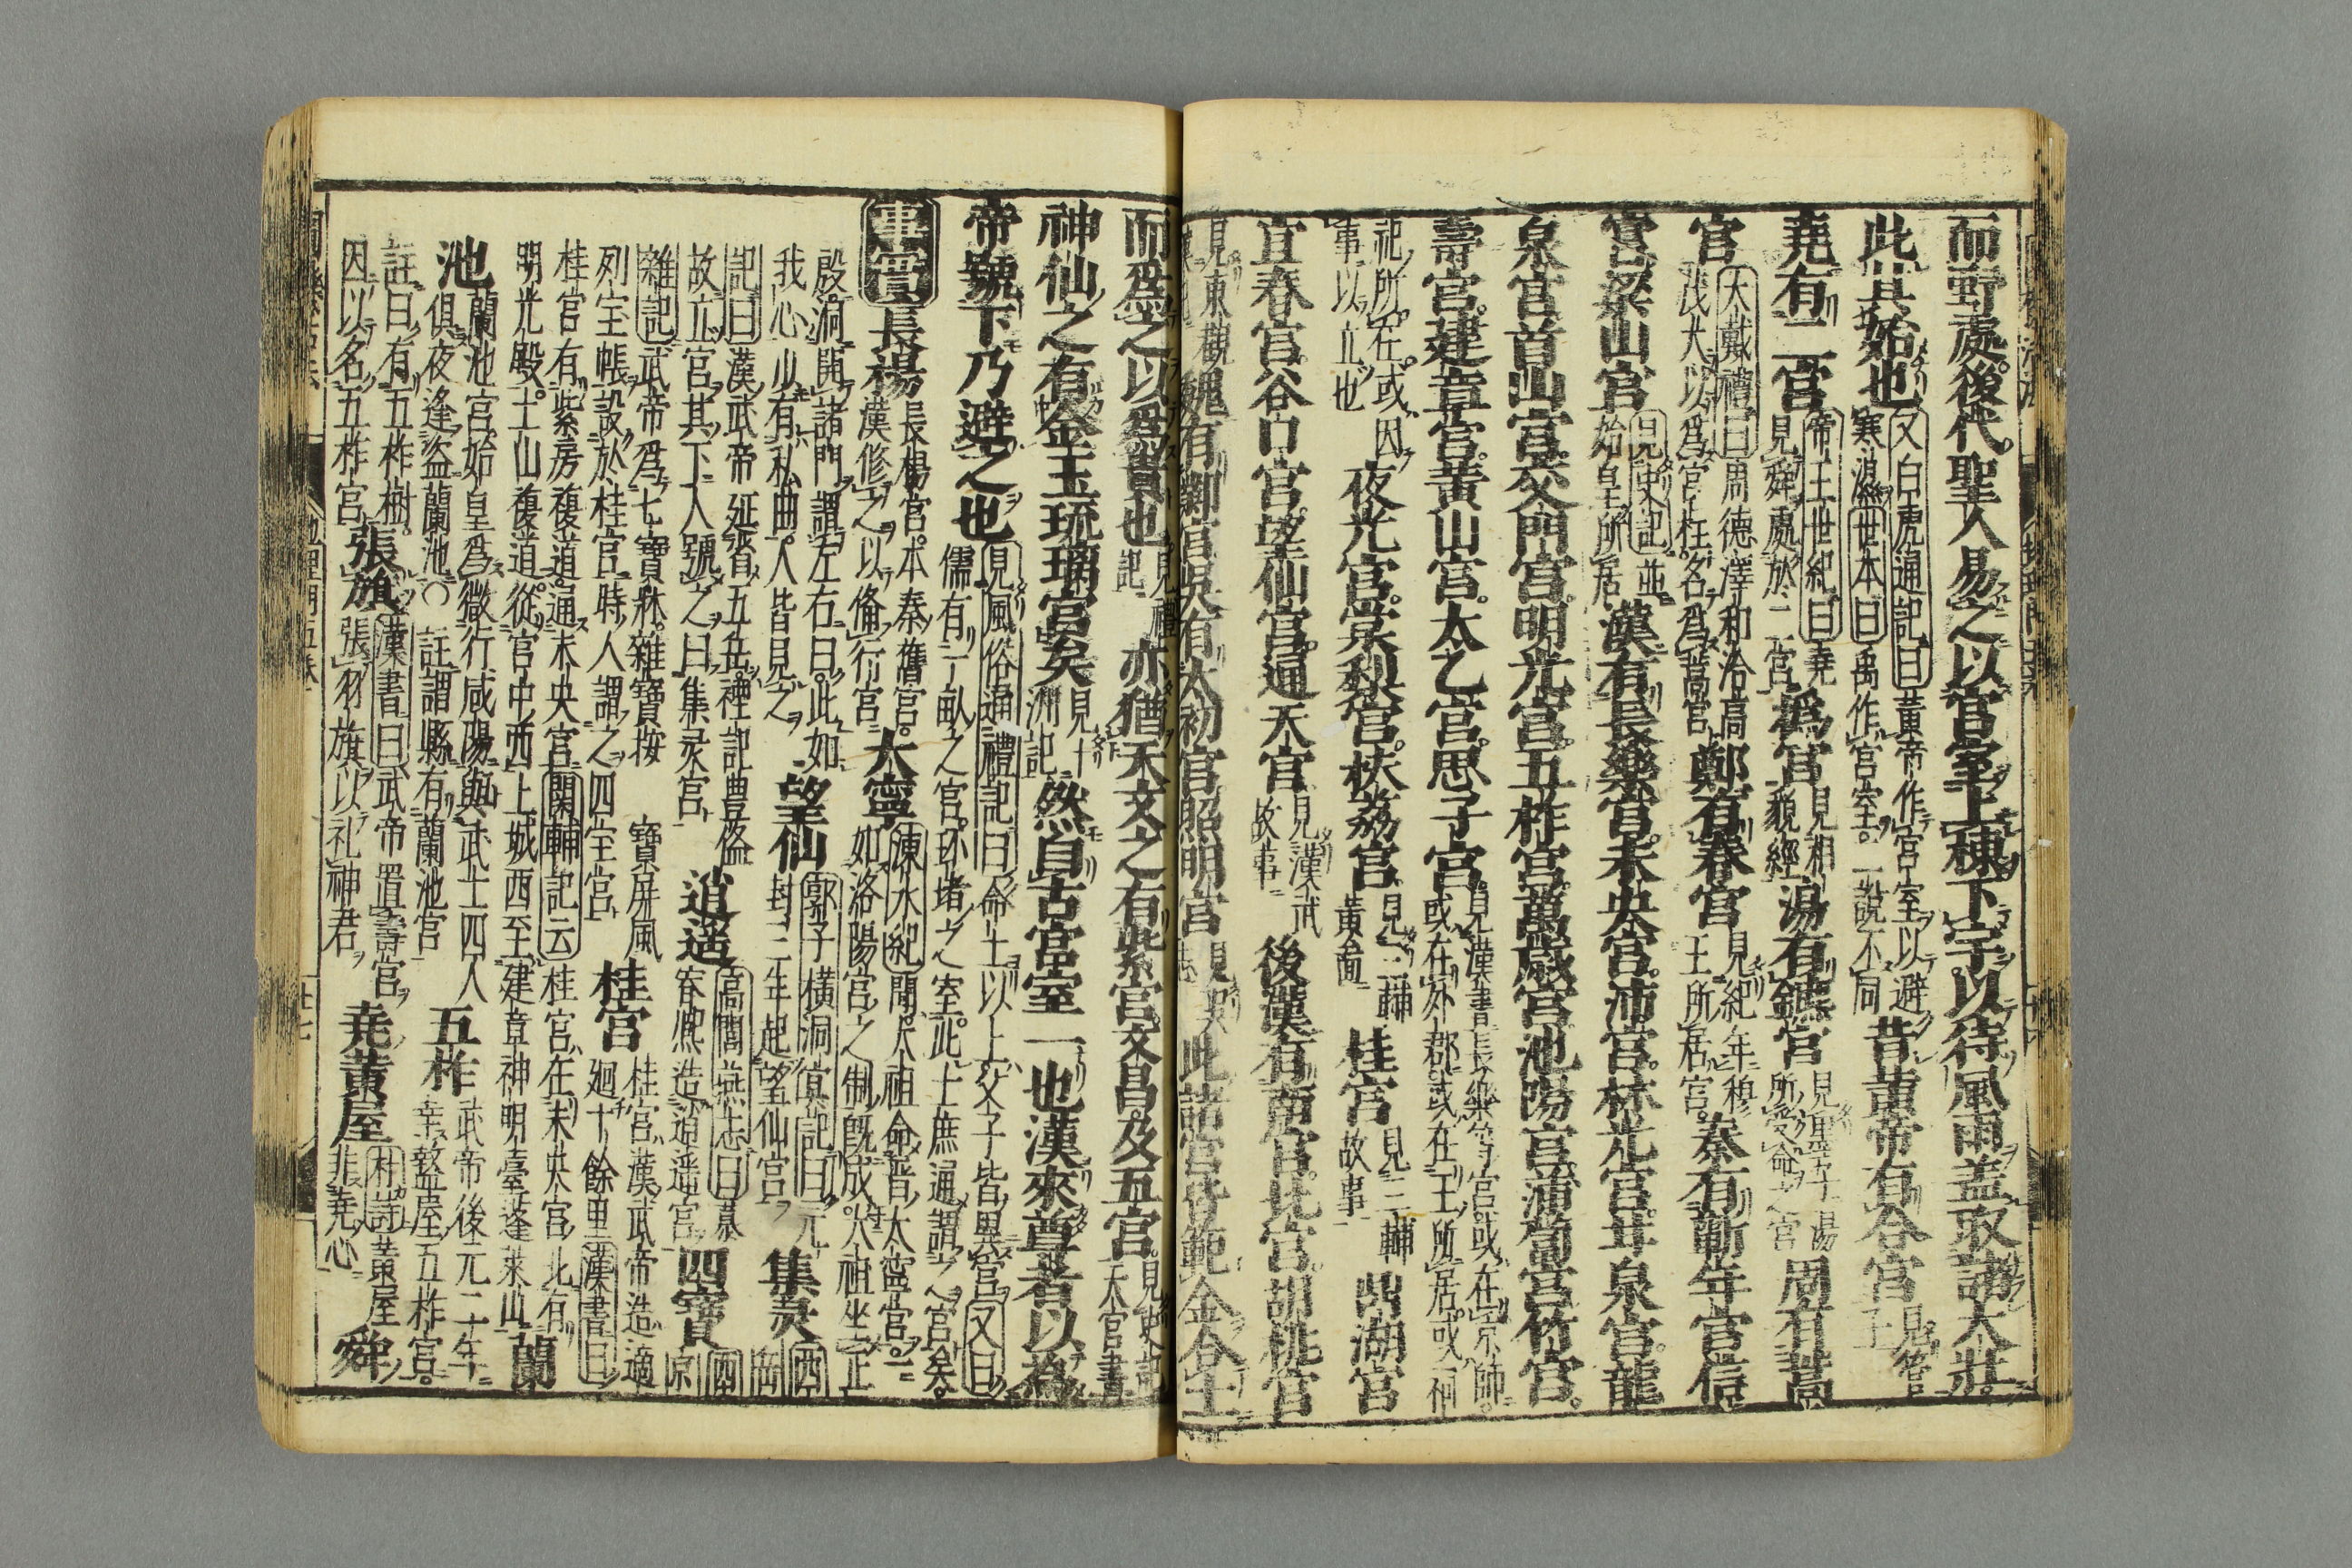 而野處後代聖人易之以宮室上棟下宇以待風雨蓋取諸大壯
此其始也又白虎通記曰黃帝作宮室以避寒溫世本曰禹作宮室一說不同昔黃帝有合宮見管子
堯有二宮帝王世紀曰堯見舜處於二宮爲宮見相貌經湯有鑣宮見墨子湯所受命之宮周有蒿
宮大戴禮曰周德澤和洽蒿茂大以爲宮柱名爲蒿宮鄭有春宮見紀年穆王所居宮秦有蘄年宮信
宮梁山宮見史記並始皇所居漢有長樂宮未央宮沛宮林光宮甘泉宮龍
泉宮首山宮交門宮明光宮五柞宮萬歲宮池陽宮蒲萄宮竹宮
壽宮建章宮黃山宮太乙宮思子宮見漢書長樂等宮或在京師或在外郡或在王所居或祠
祀所在或因事以立也夜光宮棠梨宮扶荔宮見三輔黃圖桂宮見三輔故事鼎湖宮
宜春宮谷口宮望仙宮通天宮見漢武故事後漢有南宮北宮胡桃宮
見東觀漢記魏有鄴宮吳有太初宮照明宮見吳志此諸宮皆範金合土
而爲之以爲貴也見禮記亦猶天文之有紫宮文昌及五宮見史記天官書
神仙之有金玉琉璃宮矣見十洲記然自古宮室一也漢來尊者以爲
帝號下乃避之也見風俗通禮記曰命士以上父子皆異宮又曰儒有一畝之宮環堵之室此士庶通謂之宮矣
事實長楊長楊宮本秦舊宮漢修之以備行宮太寧涑水紀聞太祖命晉太寧宮如洛陽宮之制既成太祖坐正
殿洞開諸門謂左右曰此如我心少有私曲人皆見之望仙郭子橫洞冥記曰元封三年起望仙宮集灵西岡
記曰漢武帝延省五岳禋記豊俻故立宮其下人號之曰集灵宮逍遥高閭燕志曰慕容熙造逍遥宮四寶西京
雜記武帝爲七寶牀雜寶按寶屏風列宝帳設於桂宮時人謂之四宝宮桂宮桂宮漢武帝造適廻十餘里漢書曰
桂宮有紫房複道通未央宮関輔記云桂宮在未央宮北有明光殿土山複道從宮中西上城西至建章神明臺蓬萊山蘭
池蘭池宮始皇爲微行咸陽與武士四人俱夜逢盗蘭池○註謂縣有蘭池宮五柞武帝後元二年幸盩屋五柞宮
註曰有五柞樹因以名五柞宮張旗漢書曰武帝置壽宮張羽旗以礼神君堯黄屋杜詩黄屋非堯心舜